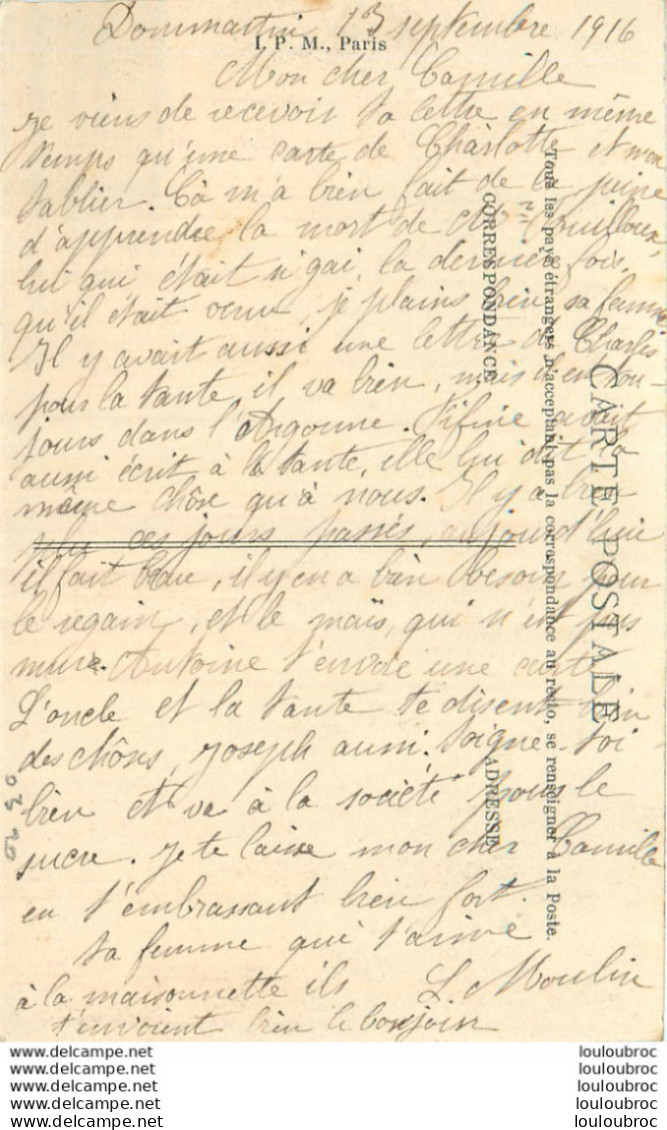 Dommartin 13 septembre 1916
I. P. M., Paris
Mon cher Camille
je viens de recevoir ta lettre en même
temps qu'une carte de Charlotte et mon
tablier. Cà m'a bien fait de la peine
d'apprendre la mort de Mr Couilloux,
lui qui était si gai la dernière fois,
qu'il était venu, je plains bien sa femme
Il y avait aussi une lettre de Charles
pour la tante, il va bien, mais il est tou-
jours dans l'Argonne. Fifine avait
aussi écrit à la tante, elle lui dit la
même chôse qu'à nous. Il y a bien
plu ces jours passés, aujourd'hui
il fait beau, il y en a bien besoin pour
le regain, et le maïs, qui n'est pas
mur. Antoine t'envoie une carte
L'oncle et la tante te disent bien
des chôses, Joseph aussi. Soigne-toi
bien et va à la société pour le
sucre. Je te laisse mon cher Camille
en t'embrassant bien fort.
ta femme qui t'aime
L Moulin
à la maisonnette ils
t'envoient bien le bonjour
CARTE POSTALE
Tous les pays étrangers n'acceptant pas la correspondance au recto, se renseigner à la Poste.
CORRESPONDANCE
ADRESSE
www.delcampe.net louloubroc
www.delcampe.net louloubroc
www.delcampe.net louloubroc
www.delcampe.net louloubroc
www.delcampe.net louloubroc